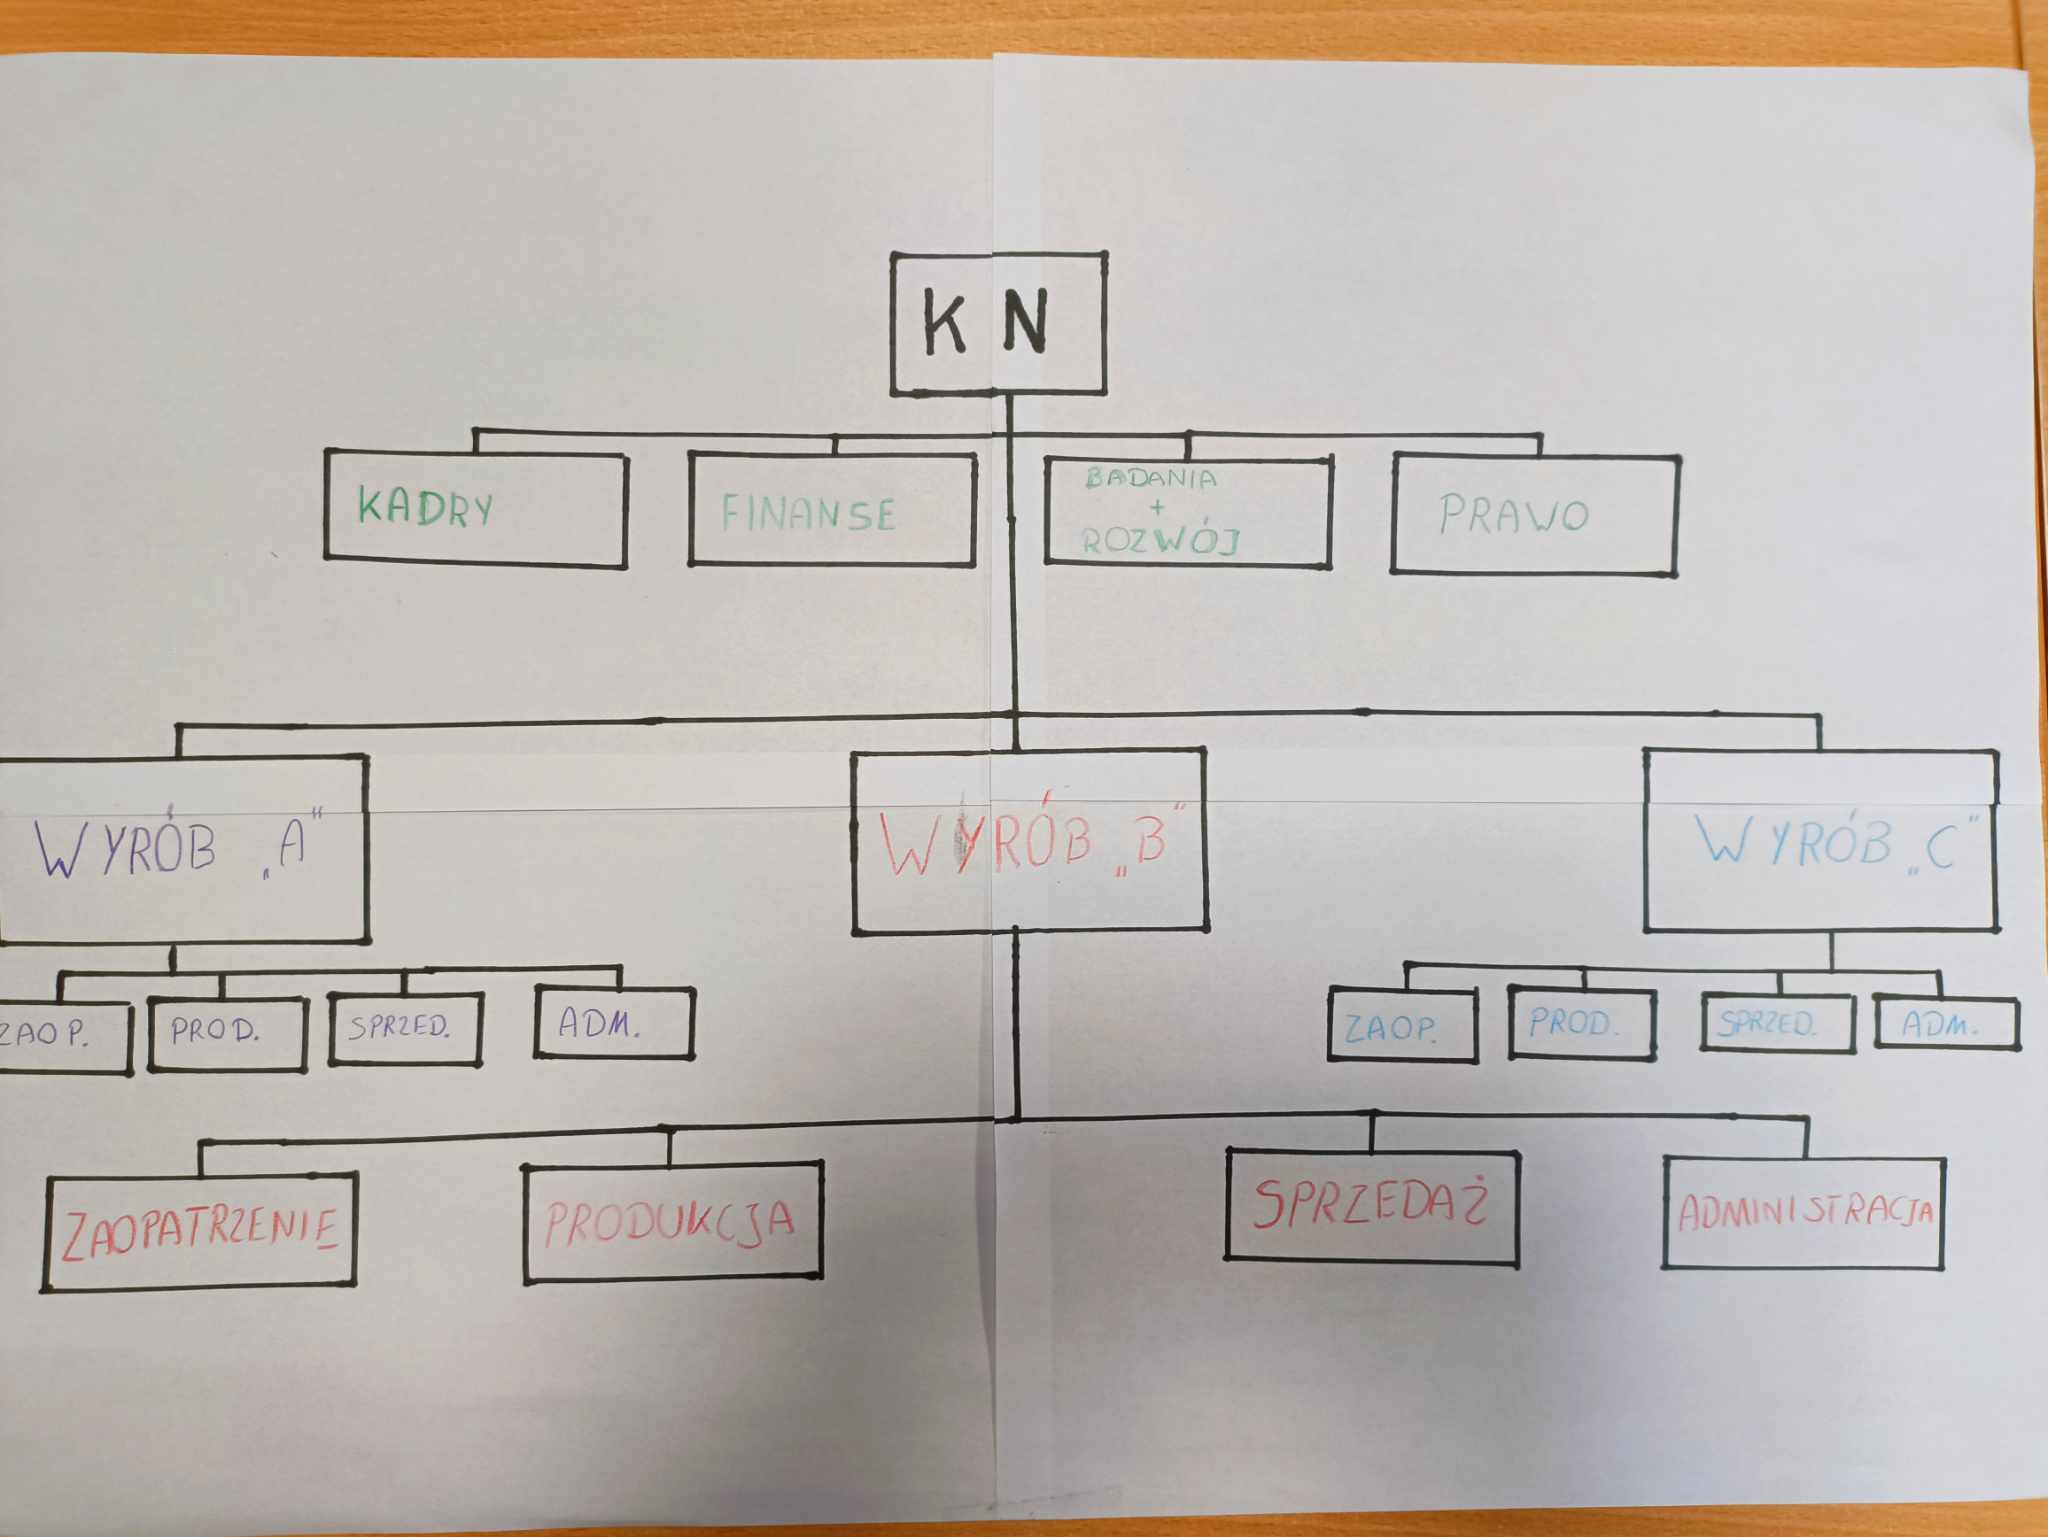 K N
KADRY
FINANSE
BADANIA
+
ROZWÓJ
PRAWO
WYRÓB „A"
WYRÓB „B"
WYRÓB „C"
ZAOP.
PROD.
SPRZED.
ADM.
ZAOP.
PROD.
SPRZED.
ADM.
ZAOPATRZENIE
PRODUKCJA
SPRZEDAŻ
ADMINISTRACJA